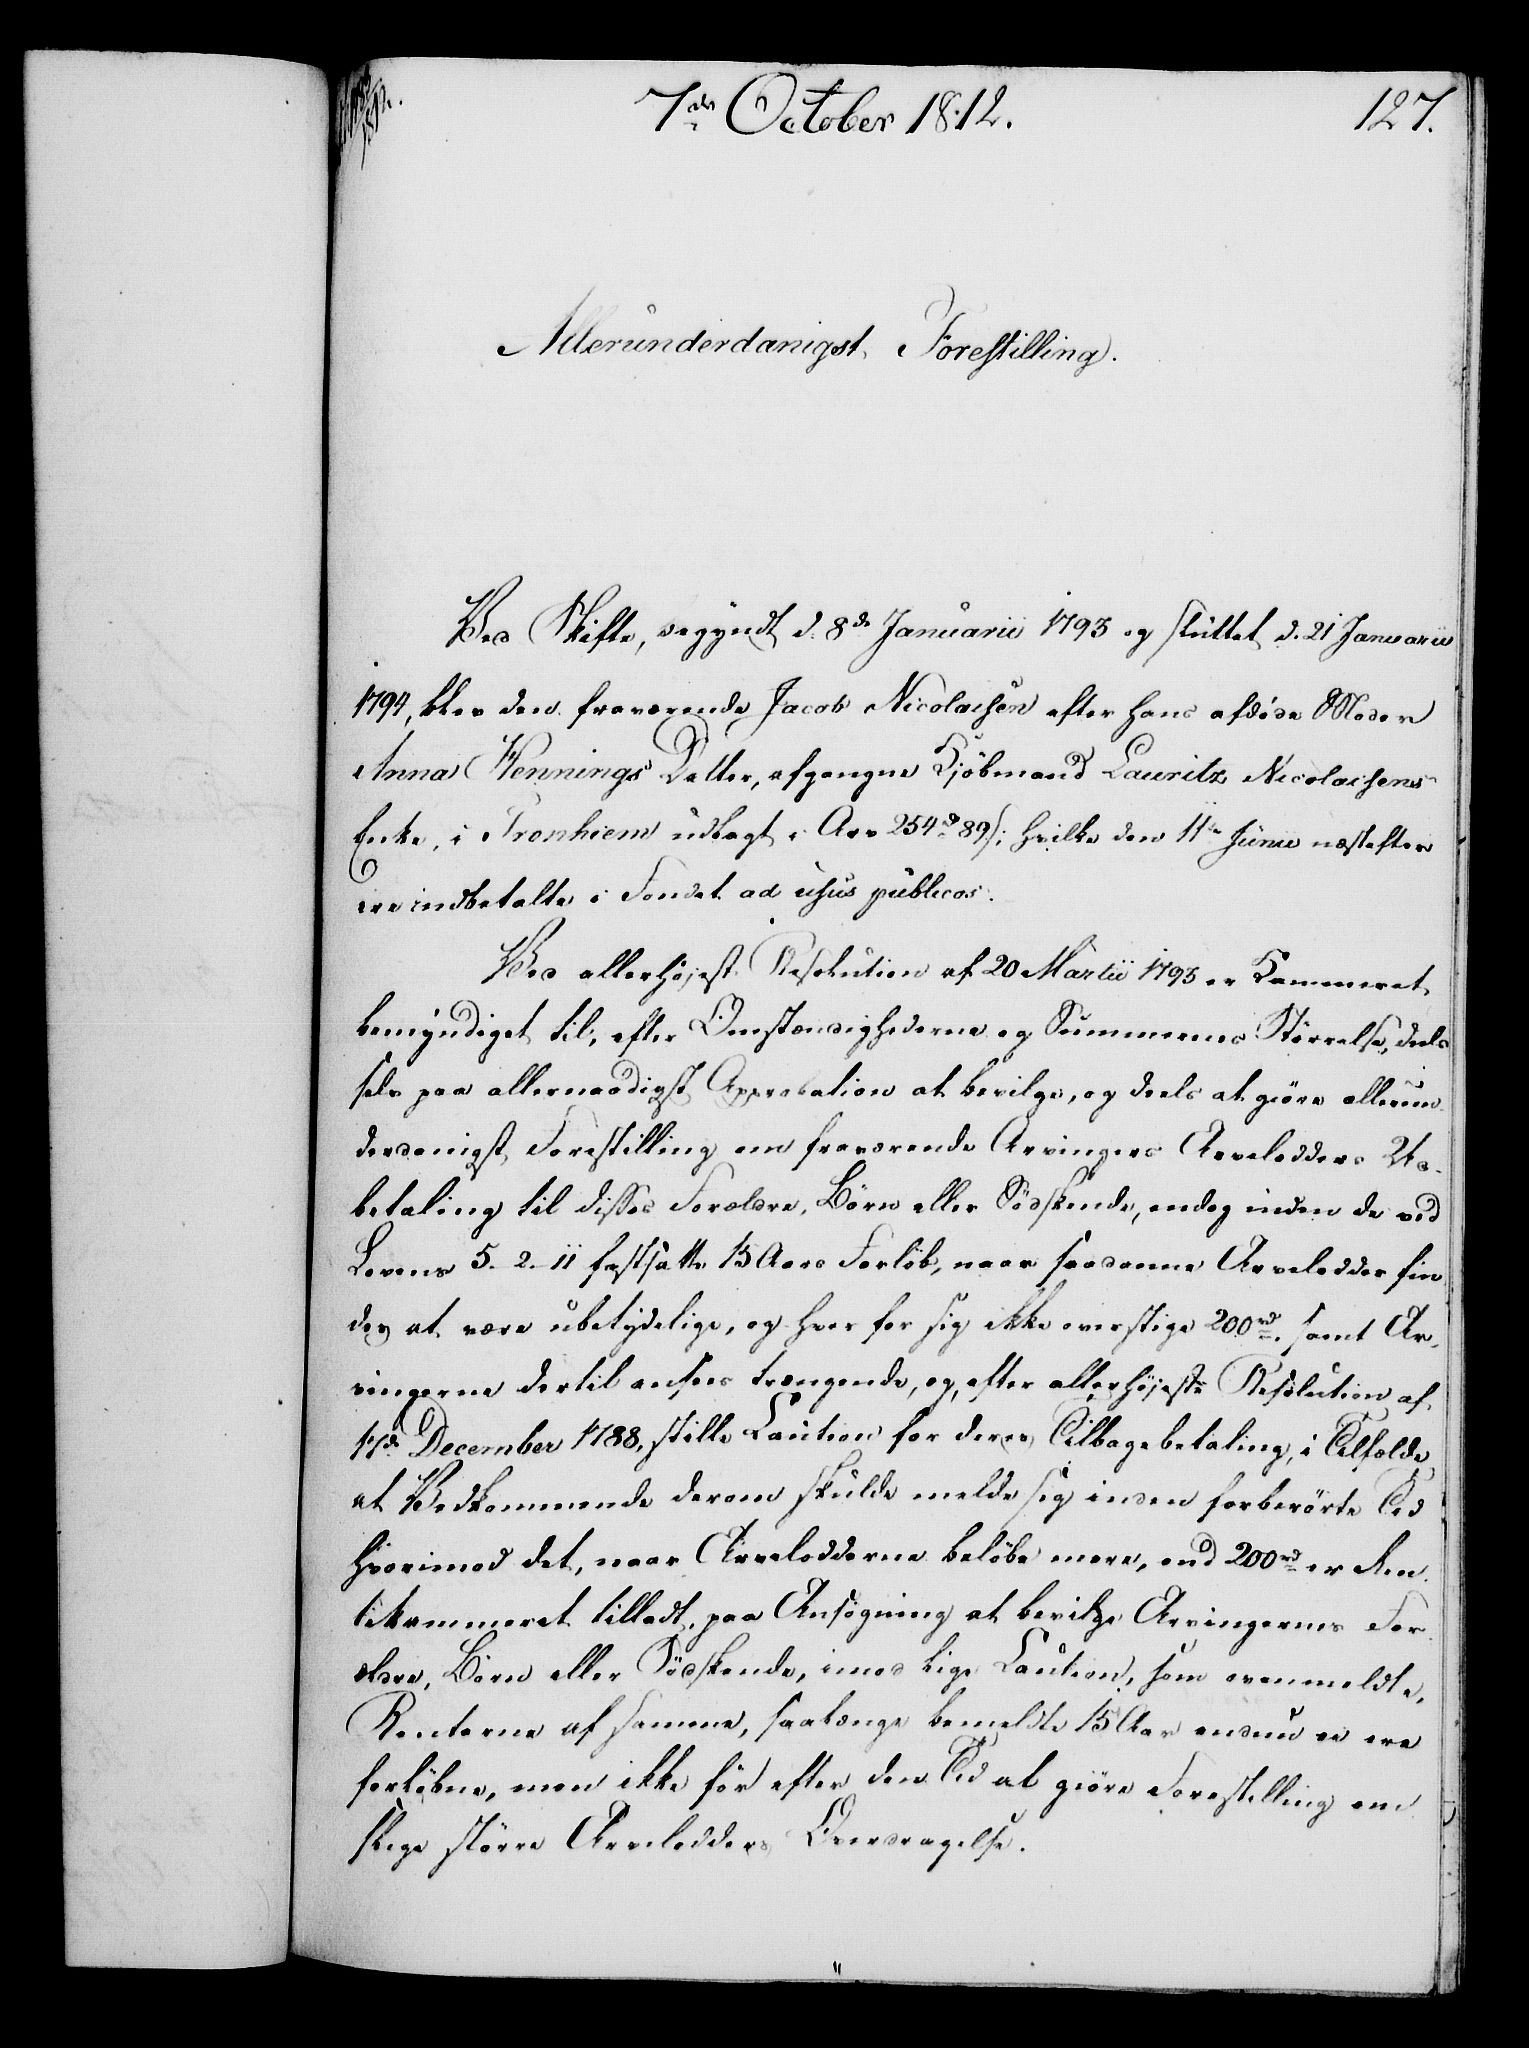 7de October 1812.
127.
Allerunderdanigst Forestilling.
Ved Skifte, begyndt d. 8de Januarii 1793 og sluttet d. 21 Januarii
1794, blev den fraværende Jacob Nicolaisen efter hans afdöde Moder
Anna Hennings Datter, afgangne Kjöbmand Lauritz Nicolaisens
Enke, i Tronhiem udlagt i Arv 254rd 89s; hvilke den 11te Junii næstefter
ere indbetalte i Fondet ad usus publicos.
Ved allerhöjest Resolution af 20 Martii 1793 er Kammeret
bemyndiget til, efter Omstændighederne og Summernes Störrelse, deels
selv paa allernaadigst Approbation at bevilge, og deels at giöre allerun-
derdanigst Forestilling om fraværende Arvingers Arvelodders Ud-
betaling til disses Forældre, Börn eller Södskende, endog inden de ved
Lovens 5-2-11 fastsatte 15 Aars Forlöb, naar saadanne Arvelodder fin
des at være ubetydelige, og hver for sig ikke overstige 200rd. samt Ar-
vingerne dertil ansees trængende, og, efter allerhöjeste Resolution af
17de December 1788, stille Caution for deres Tilbagebetaling, i Tilfælde
at Vedkommende derom skulde melde sig inden forberörte Tid
hvorimod det, naar Arvelodderne belöbe mere, end 200rd er Ren
tekammeret tilladt, paa Ansögning at bevilge Arvingernes For
ældre, Börn eller Södskende, imod lige Caution, som ovenmeldte,
Renterne af samme, saalænge bemeldte 15 Aar endnu ei ere
forlöbne, men ikke för efter den Tid at giöre Forestilling om
slige större Arvelodders Overdragelse.